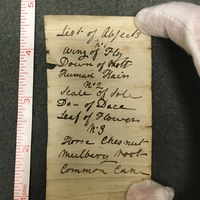 List of Objects
No 1
Wing of Fly
Down of Moth
Human Hair
No 2
Scale of Sole
Do - of Dace
Leaf of Flower
No 3
Horse Chesnut
Mulbery Root
Common Cane
1
2
3
4
5